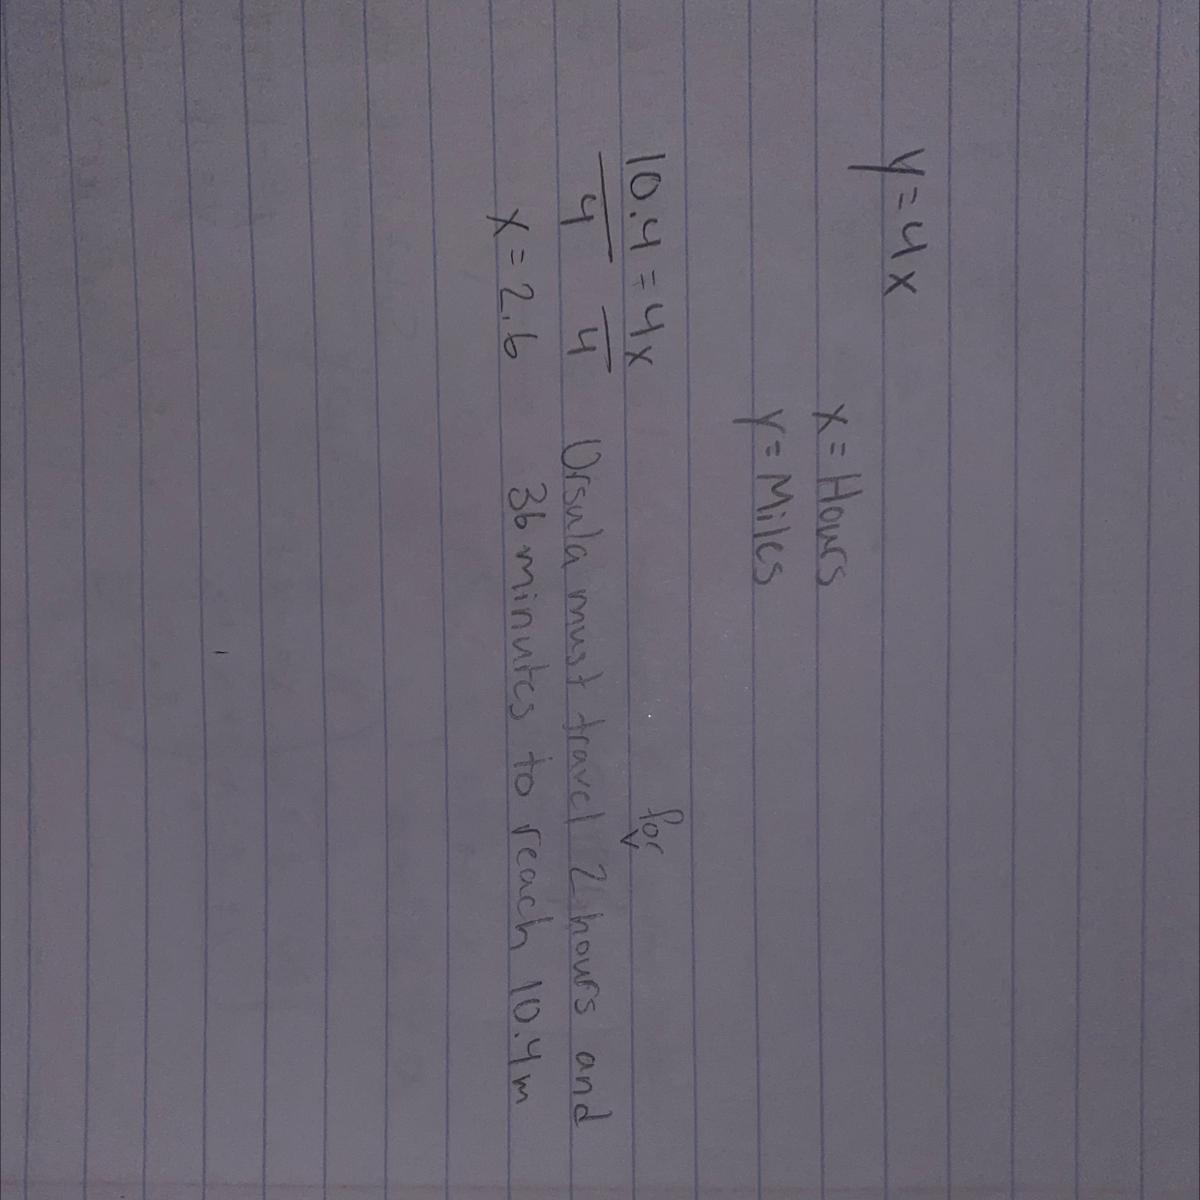 y = 4x
x = Hours
y = Miles
10.4 = 4x
4 4
for
Ursula must travel 2 hours and
x = 2.6
36 minutes to reach 10.4m